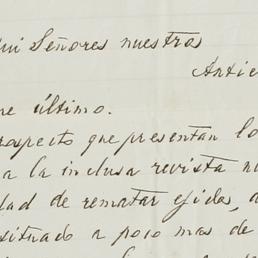 Señores nuestros
último.
que presentan lo
a la inclusa revista
dad de rematar ejidos, a
situado a poco mas de